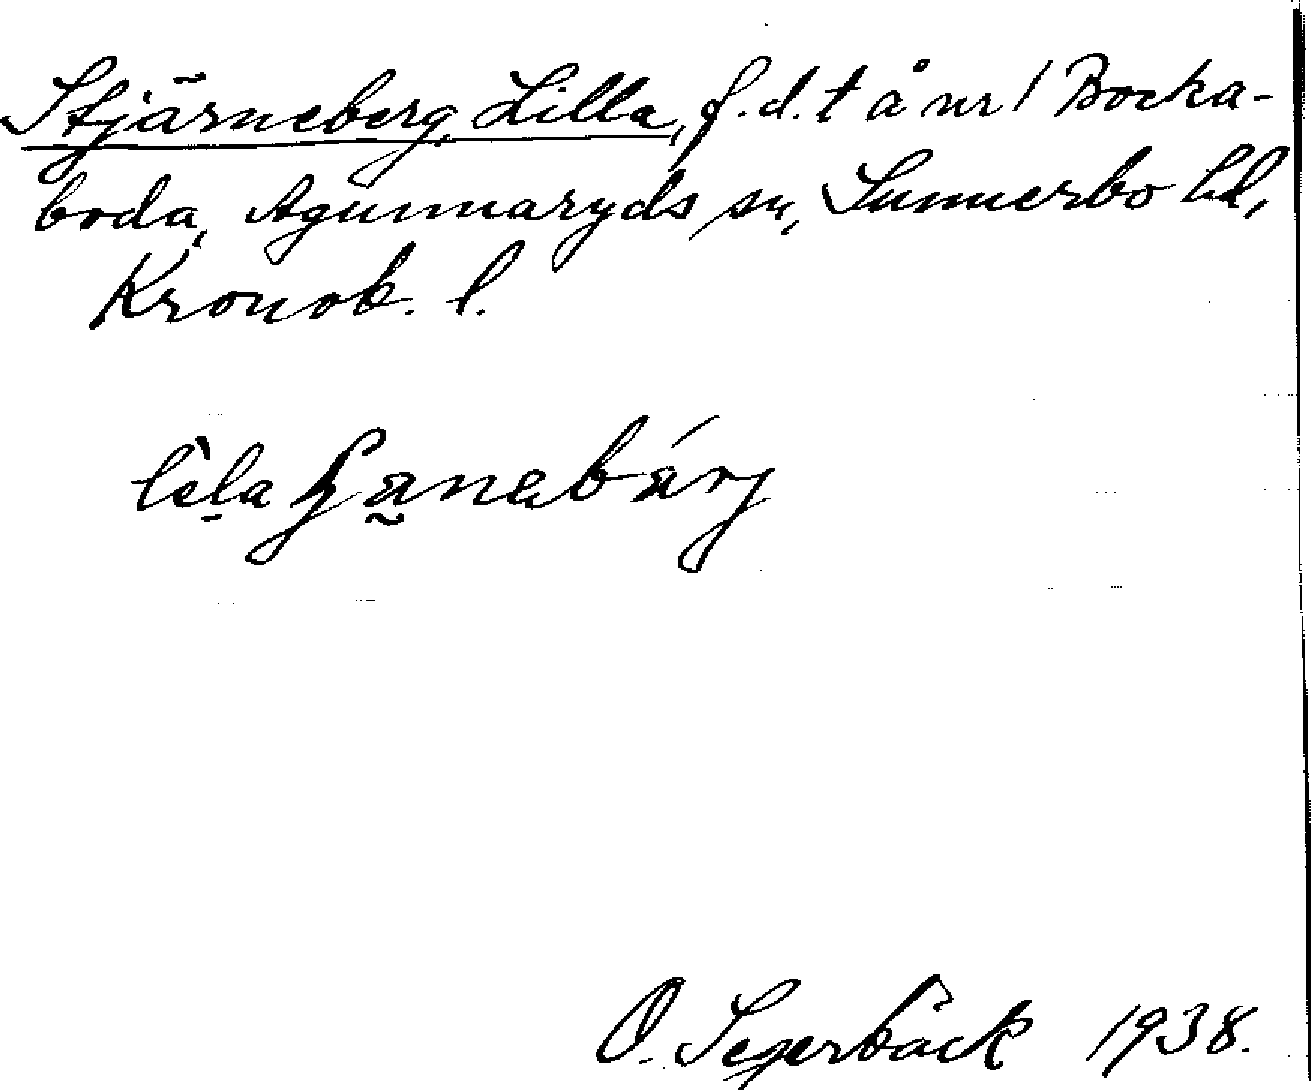 Stjärneberg, Lilla, f.d. t å nr 1 Bocka-
boda, Agunnaryds sn, Sunnerbo hd,
Kronob. l.
O. Segerbäck 1938.